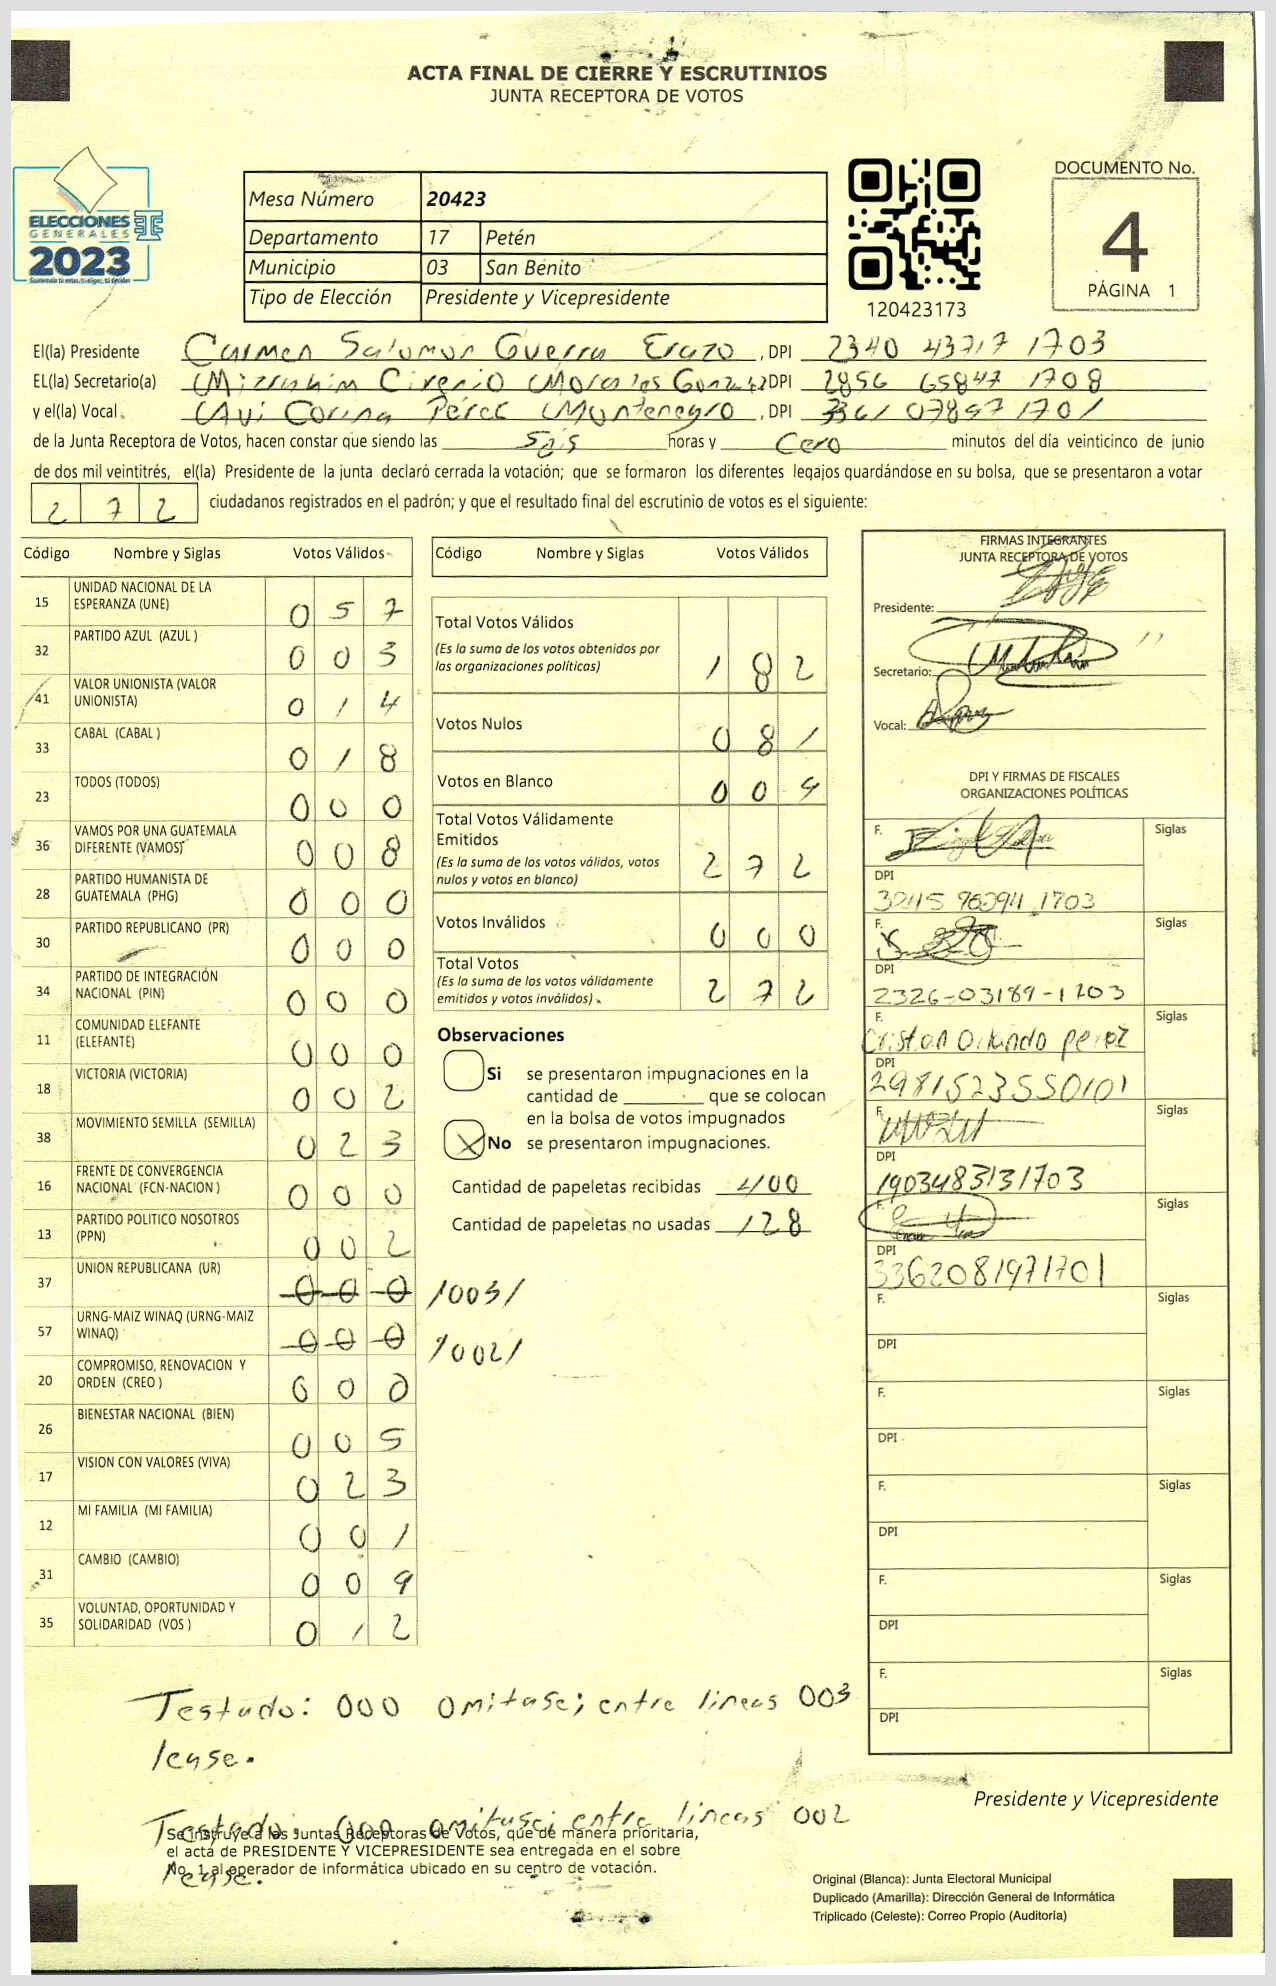 ACTA FINAL DE CIERRE Y ESCRUTINIOS
JUNTA RECEPTORA DE VOTOS
DOCUMENTO No.
4
PÁGINA 1
ELECCIONES
GENERALES
2023
Mesa Número 20423
Departamento 17 Petén
Municipio 03 San Benito
Tipo de Elección Presidente y Vicepresidente
120423173
El(la) Presidente Carmen Salomon Guerra Erazo , DPI 2340 43717 1703
EL(la) Secretario(a) Cirenio Morales DPI 2856 65847 1708
y el(la) Vocal Corina Pérez Montenegro , DPI 3361 07897 1701
de la Junta Receptora de Votos, hacen constar que siendo las Seis horas y Cero minutos del día veinticinco de junio
de dos mil veintitrés, el(la) Presidente de la junta declaró cerrada la votación; que se formaron los diferentes legajos guardándose en su bolsa, que se presentaron a votar
272 ciudadanos registrados en el padrón; y que el resultado final del escrutinio de votos es el siguiente:
Código Nombre y Siglas Votos Válidos
15 UNIDAD NACIONAL DE LA ESPERANZA (UNE) 057
32 PARTIDO AZUL (AZUL ) 003
41 VALOR UNIONISTA (VALOR UNIONISTA) 014
33 CABAL (CABAL ) 018
23 TODOS (TODOS) 000
36 VAMOS POR UNA GUATEMALA DIFERENTE (VAMOS) 008
28 PARTIDO HUMANISTA DE GUATEMALA (PHG) 000
30 PARTIDO REPUBLICANO (PR) 000
34 PARTIDO DE INTEGRACIÓN NACIONAL (PIN) 000
11 COMUNIDAD ELEFANTE (ELEFANTE) 000
18 VICTORIA (VICTORIA) 002
38 MOVIMIENTO SEMILLA (SEMILLA) 023
16 FRENTE DE CONVERGENCIA NACIONAL (FCN-NACION ) 000
13 PARTIDO POLITICO NOSOTROS (PPN) 002
37 UNION REPUBLICANA (UR) 000 /003/
57 URNG-MAIZ WINAQ (URNG-MAIZ WINAQ) 000 /002/
20 COMPROMISO, RENOVACION Y ORDEN (CREO ) 000
26 BIENESTAR NACIONAL (BIEN) 005
17 VISION CON VALORES (VIVA) 023
12 MI FAMILIA (MI FAMILIA) 001
31 CAMBIO (CAMBIO) 009
35 VOLUNTAD, OPORTUNIDAD Y SOLIDARIDAD (VOS ) 012
Código Nombre y Siglas Votos Válidos
Total Votos Válidos
(Es la suma de los votos obtenidos por
las organizaciones políticas) 182
Votos Nulos 081
Votos en Blanco 009
Total Votos Válidamente
Emitidos
(Es la suma de los votos válidos, votos
nulos y votos en blanco) 272
Votos Inválidos 000
Total Votos
(Es la suma de los votos válidamente
emitidos y votos inválidos) 272
Observaciones
Si se presentaron impugnaciones en la
cantidad de ________ que se colocan
en la bolsa de votos impugnados
X No se presentaron impugnaciones.
Cantidad de papeletas recibidas 400
Cantidad de papeletas no usadas 128
FIRMAS INTEGRANTES
JUNTA RECEPTORA DE VOTOS
Presidente:
Secretario:
Vocal:
DPI Y FIRMAS DE FISCALES
ORGANIZACIONES POLÍTICAS
F. Siglas
DPI
F. Siglas
DPI
2326-03189-1703
F. Siglas
Cristan Orlando perez
DPI
2981523550101
F. Siglas
DPI
1903483131703
F. Siglas
DPI
3362081971701
F. Siglas
DPI
F. Siglas
DPI
F. Siglas
DPI
F. Siglas
DPI
F. Siglas
DPI
Testado: 000 omitase; entre lineas 003
lease.
Testado: 000 omitase; entre lineas 002
lease.
Se instruye a las Juntas Receptoras de Votos, que de manera prioritaria,
el acta de PRESIDENTE Y VICEPRESIDENTE sea entregada en el sobre
No. 1 al operador de informática ubicado en su centro de votación.
Presidente y Vicepresidente
Original (Blanca): Junta Electoral Municipal
Duplicado (Amarilla): Dirección General de Informática
Triplicado (Celeste): Correo Propio (Auditoría)